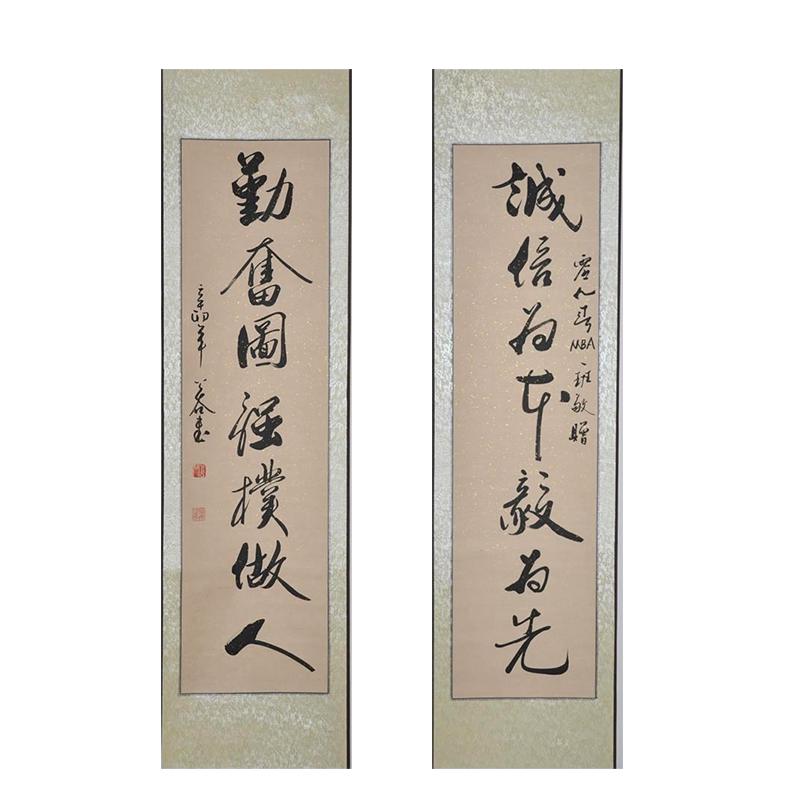 誠信為本毅為先
MBA一班敬贈
勤奮圖强樸做人
辛卯年
書